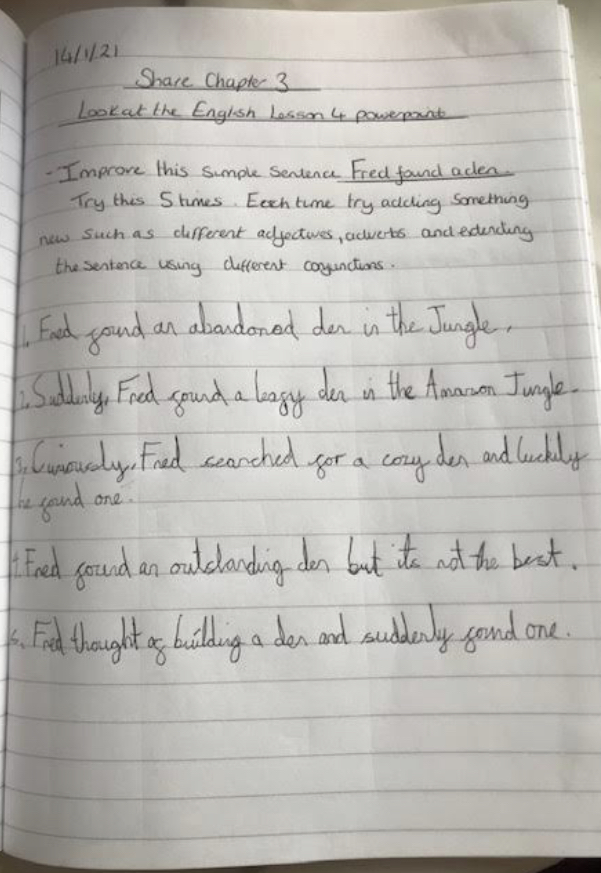 14/1/21
Share Chapter 3
Look at the English Lesson 4 powerpoint
- Improve this simple sentence Fred found a den.
Try this 5 times. Each time try adding something
new such as different adjectives, adverbs and extending
the sentence using different conjunctions.
1. Fred found an abandoned den in the Jungle.
2. Suddenly, Fred found a leafy den in the Amazon Jungle.
3. Curiously, Fred searched for a cozy den and luckily
he found one.
4. Fred found an outstanding den but its not the best.
5. Fred thought of building a den and suddenly found one.